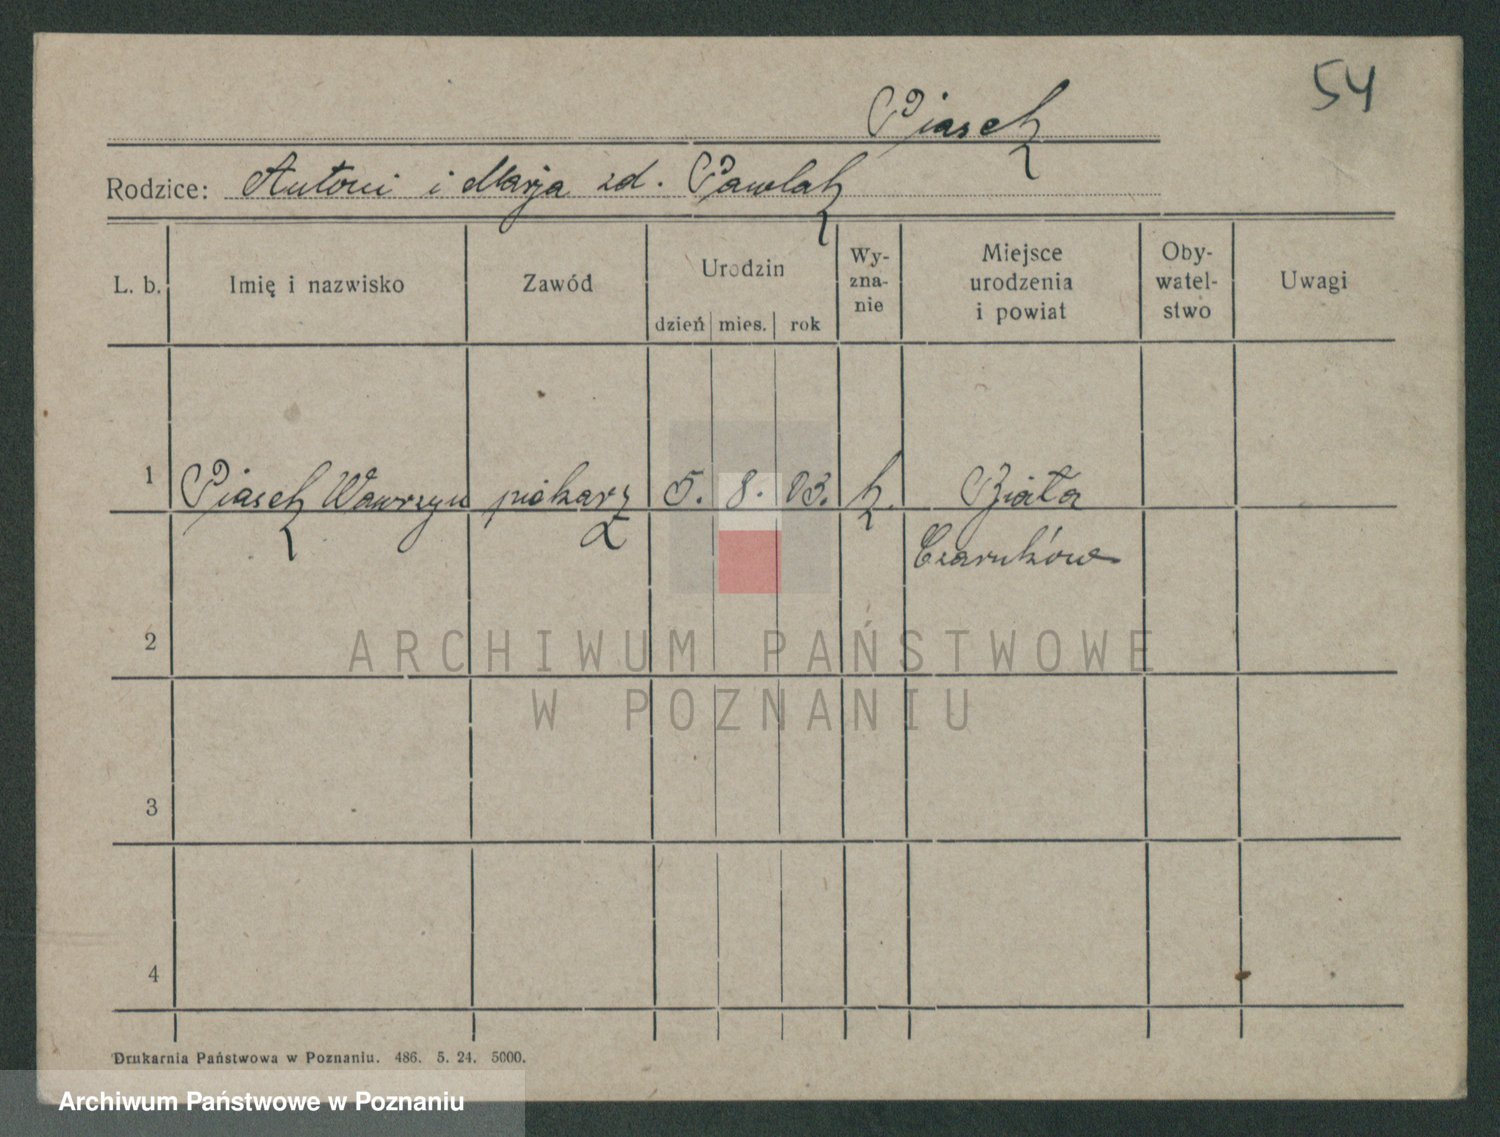 54
Piasek
Rodzice: Antoni i Marja zd. Pawlak
L. b. Imię i nazwisko Zawód Urodzin dzień mies. rok Wy-zna-nie Miejsce urodzenia i powiat Oby-watel-stwo Uwagi
1 Piasek Wawrzyn piekarz 5. 8. 03. k. Biała
Czarnków
2
ARCHIWUM PAŃSTWOWE
W POZNANIU
3
4
Drukarnia Państwowa w Poznaniu. 486. 5. 24. 5000.
Archiwum Państwowe w Poznaniu